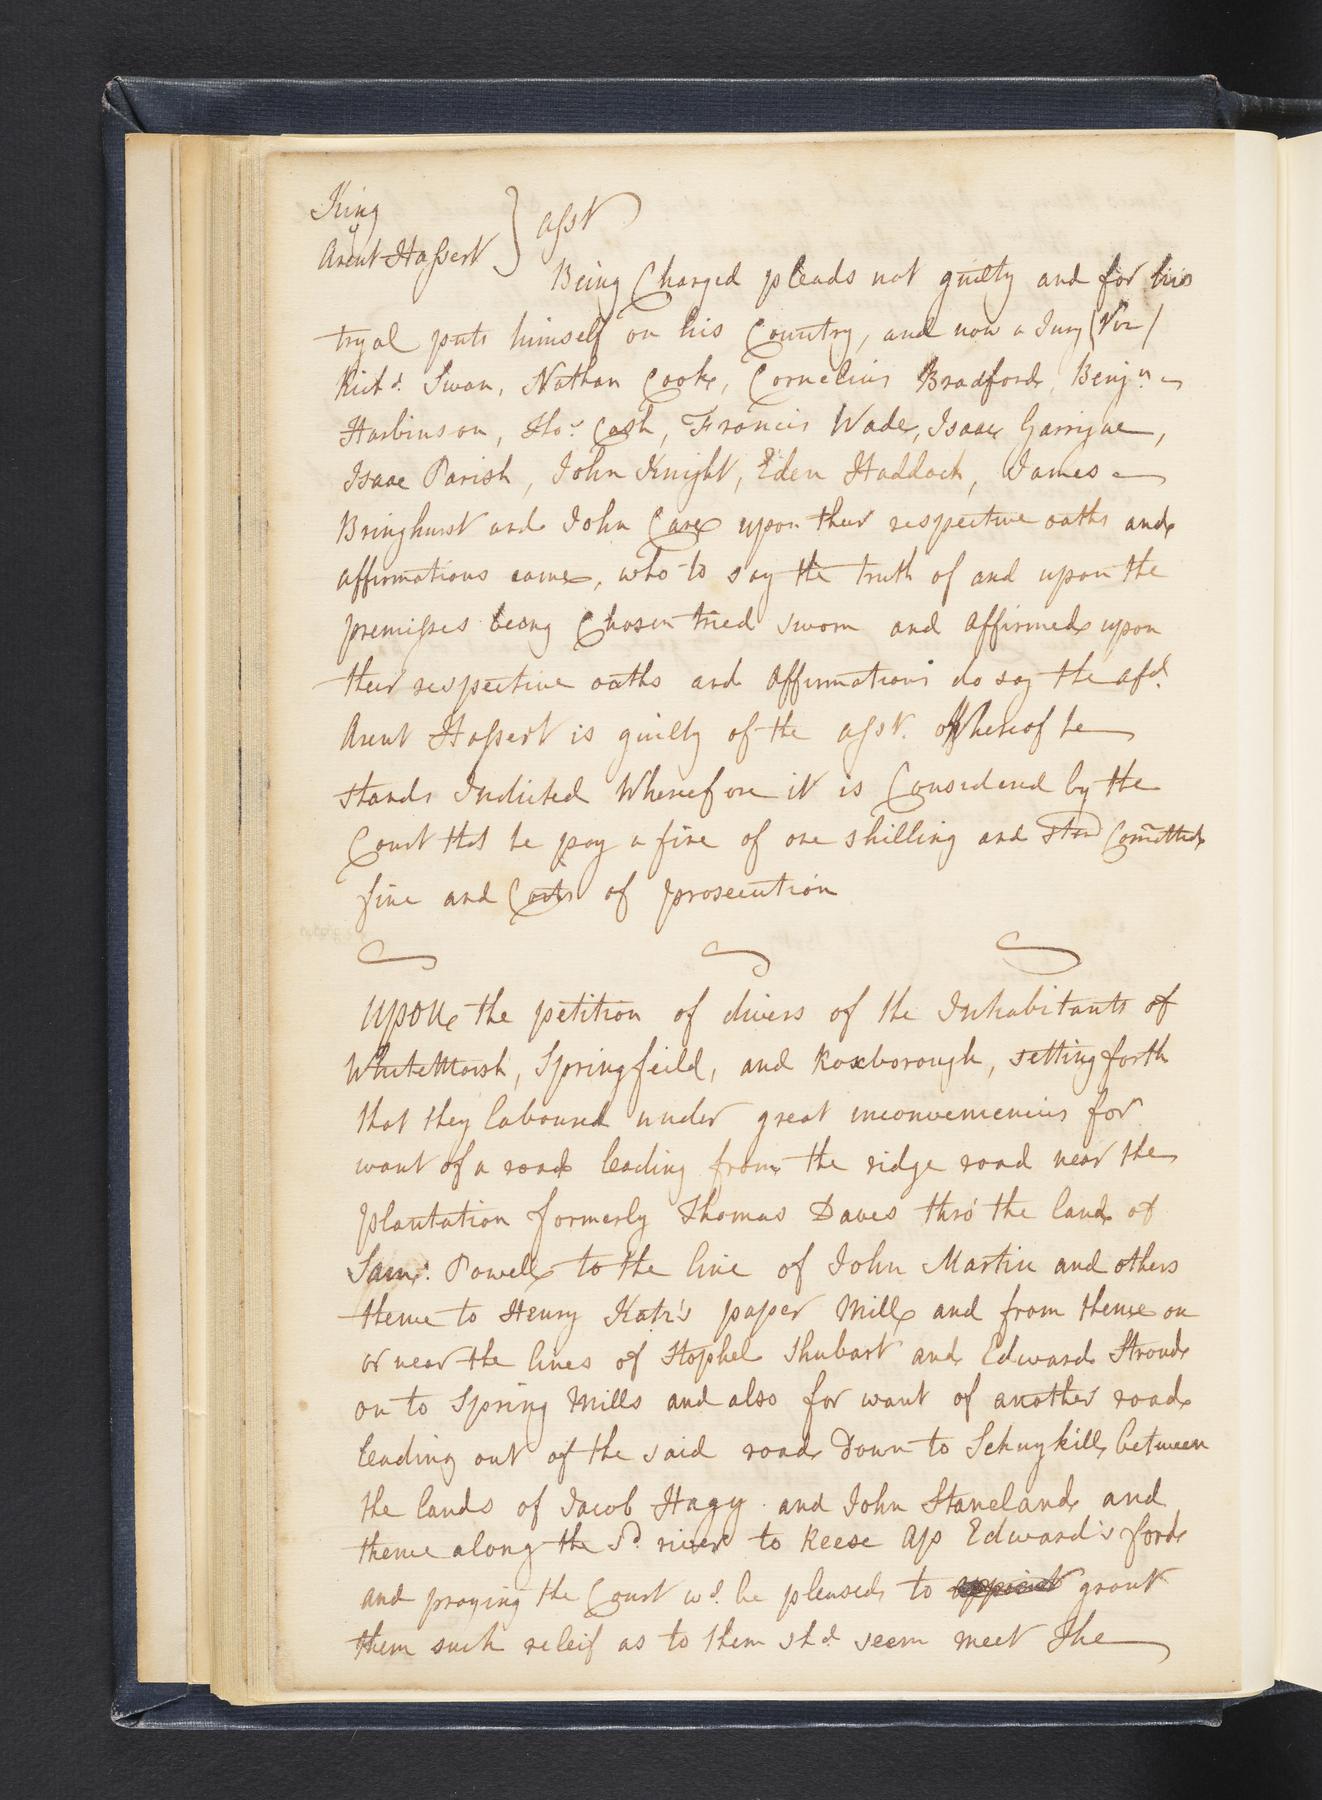 King
v
Arent Hassert } asst
Being Charged pleads not guilty and for his
tryal puts himself on his Country, and now a Jury (Viz/
Richd. Swan, Nathan Cook, Cornelius Bradford, Benjn.
Harbinson, Thos. Cash, Francis Wade, Isaac Garrigue,
Isaac Parish, John Knight, Eden Haddock, James
Bringhurst and John Care upon their respective oaths and
affirmations came, who to say the truth of and upon the
premisses being Chosen tried sworn and affirmed upon
their respective oaths and affirmations do say the afd.
Arent Hassert is guilty of the asst. Whereof he
stands Indicted Wherefore it is Considered by the
Court that he pay a fine of one shilling and stand Comitted
fine and Costs of prosecution
Upon the petition of divers of the Inhabitants of
WhiteMarsh, Springfeild, and Roxborough, setting forth
that they laboured under great inconveniencies for
want of a road leading from the ridge road near the
plantation formerly Thomas Daves thro' the land of
Saml. Powell to the line of John Martin and others
thence to Henry Katz's paper Mill and from thence on
or near the lines of Stophel Shubart and Edward Stroud
on to Spring Mills and also for want of another road
leading out of the said road Down to Schuykill between
the lands of Jacob Hagy and John Staneland and
thence along the sd. river to Reese Aps Edward's ford
and praying the Court wd. be pleased to appoint grant
them such releif as to them shd. seem meet The